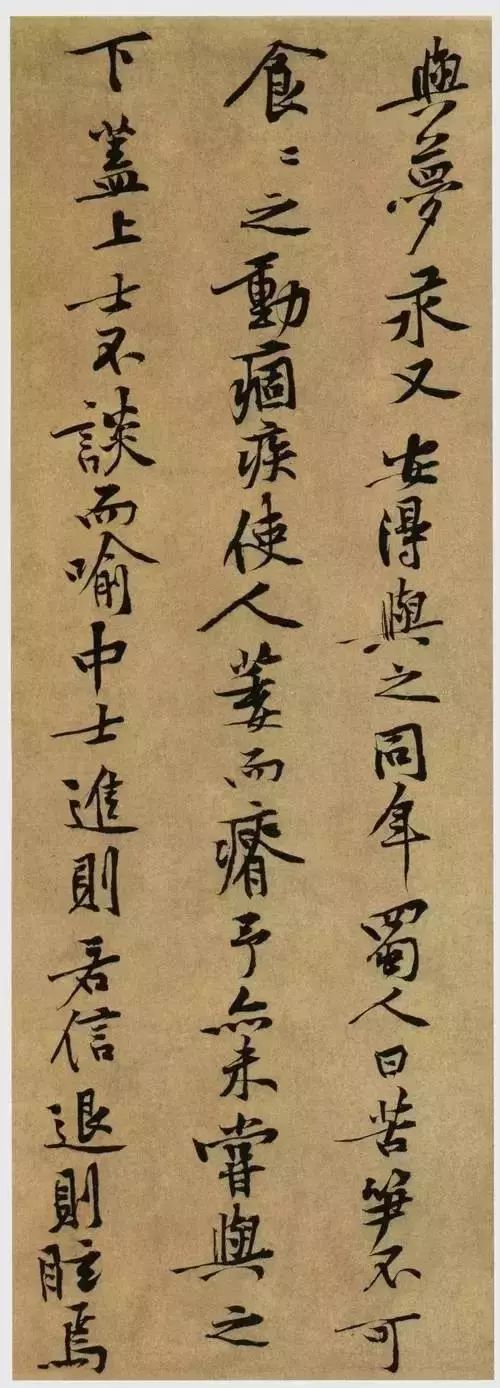 與夢汞又安得與之同年蜀人曰苦笋不可
食〻之動痼疾使人萎而瘠予亦未嘗與之
下蓋上士不談而喻中士進則若信退則眩焉